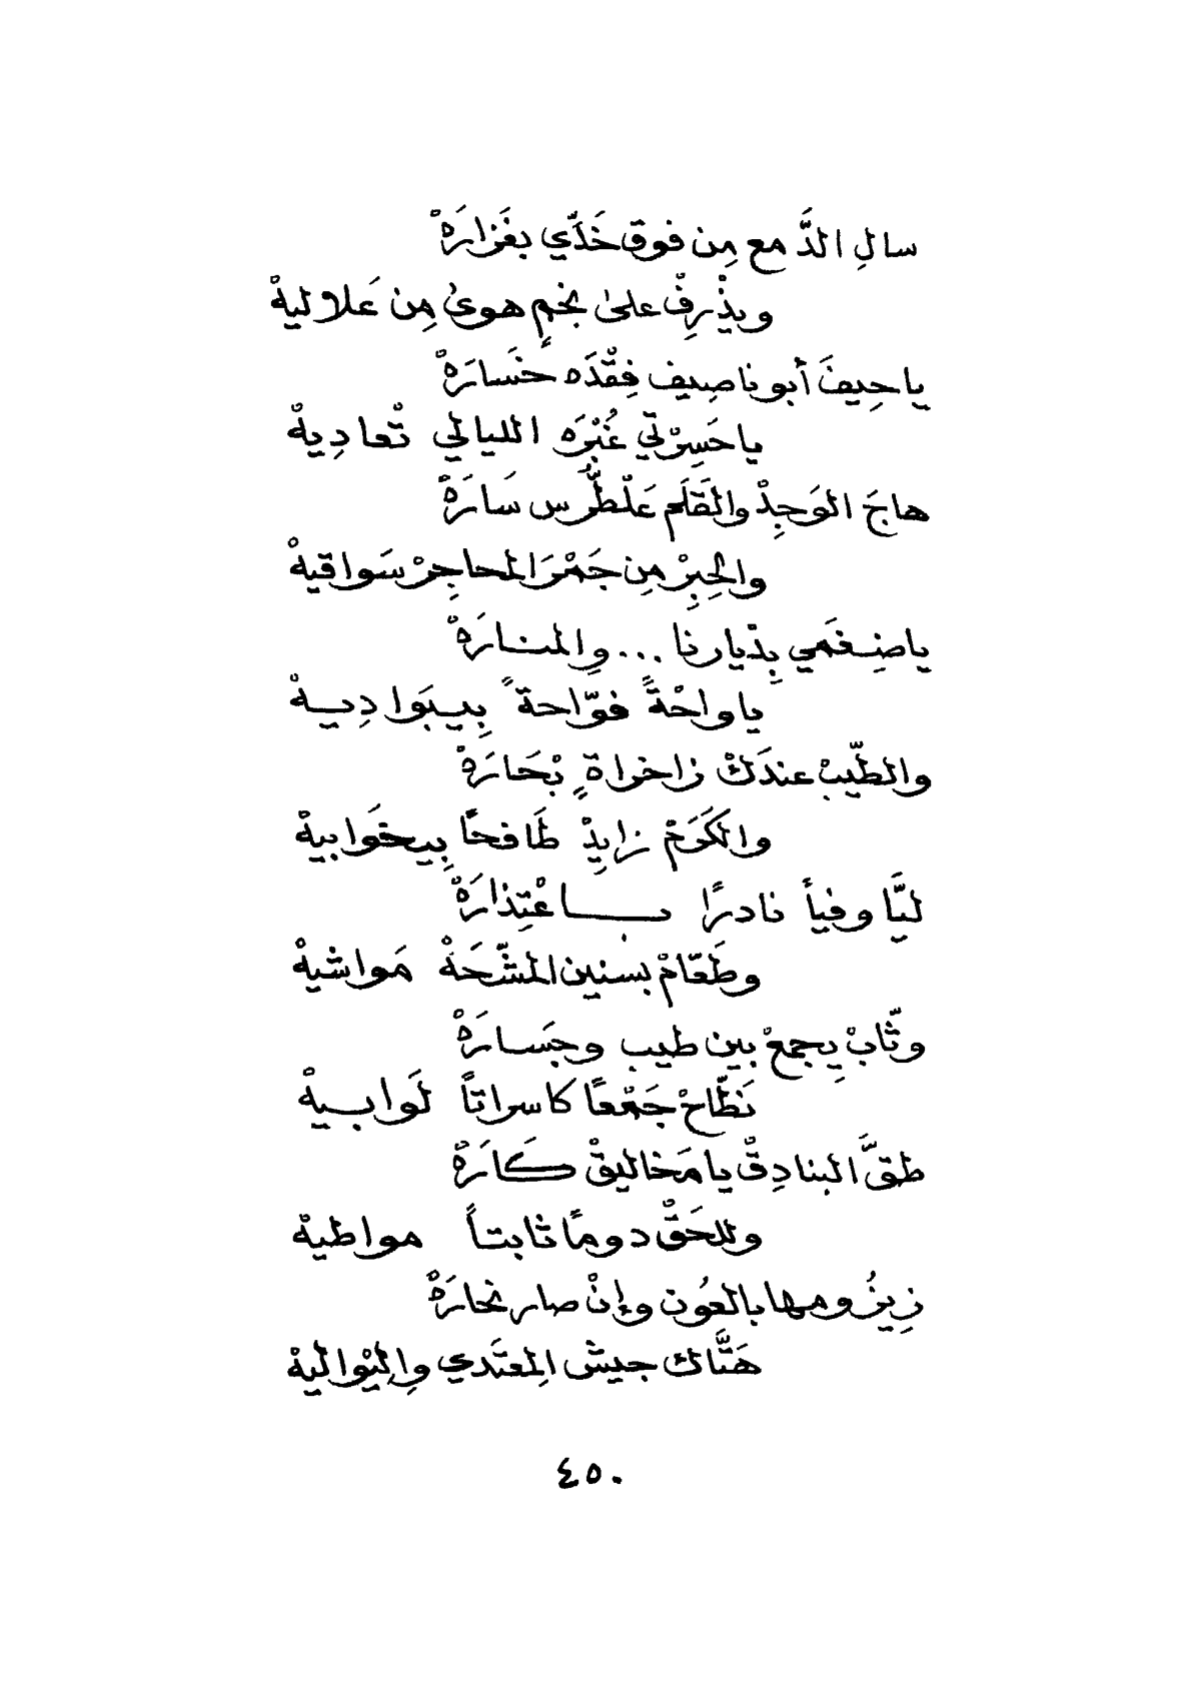 سالِ الدَّمع مِن فوق خَدّي بغَزارَةْ
ويذْرِفْ على نجمٍ هوىٰ مِن عَلاليةْ
يا حِيفَ أبو ناصِيف فِقْدَه خَسارَةْ
يا حَسِرْتي غُبْرَه الليالي تْعادِيةْ
هاجَ الوَجِدْ والقَلَم عَلْطِّرْس سَارَةْ
والحِبِرْ مِن جَمْرَ المحاجِرْ سَواقيةْ
يا ضِغَمي بِدْيارنا ... والمنارَةْ
يا واحْةً فوّاحةً بِيبَوادِيةْ
والطّيبْ عندَكْ زاخراةٍ بْحَارَةْ
والكَرَمْ زايِدْ طَافحاً بِيخَوابيةْ
ليَّا وفيأ نادرًا باعْتِذارَةْ
وطَعّامْ بسنين المشّحَةْ مَواشيةْ
وثّابْ يِجمعْ بين طيب وجَسارَةْ
نَطّاحْ جَمْعاً كاسراتاً لَوابيةْ
طقَّ البنادِقْ يا مَخاليقْ كَارَةْ
وللحَقْ دوماً ثابتاً مواطيةْ
زِيزُومها بالعُون وإنْ صار نحارَةْ
هَتَّاك جيش المِعتَدي وِالِيْواليةْ
٤٥٠